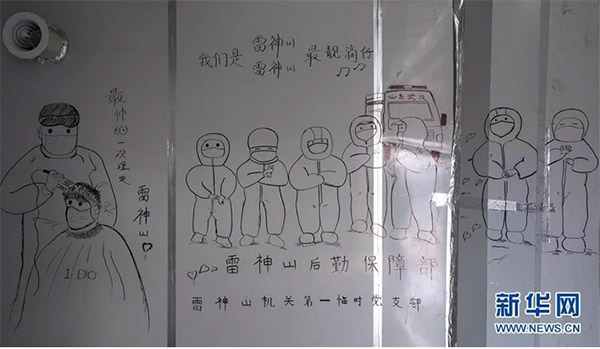 我们是 雷神山 最靓滴仔
雷神山
最帅的一次理发
雷神山
I DO
雷神山后勤保障部
雷神山机关第一临时党支部
新华网
WWW.NEWS.CN